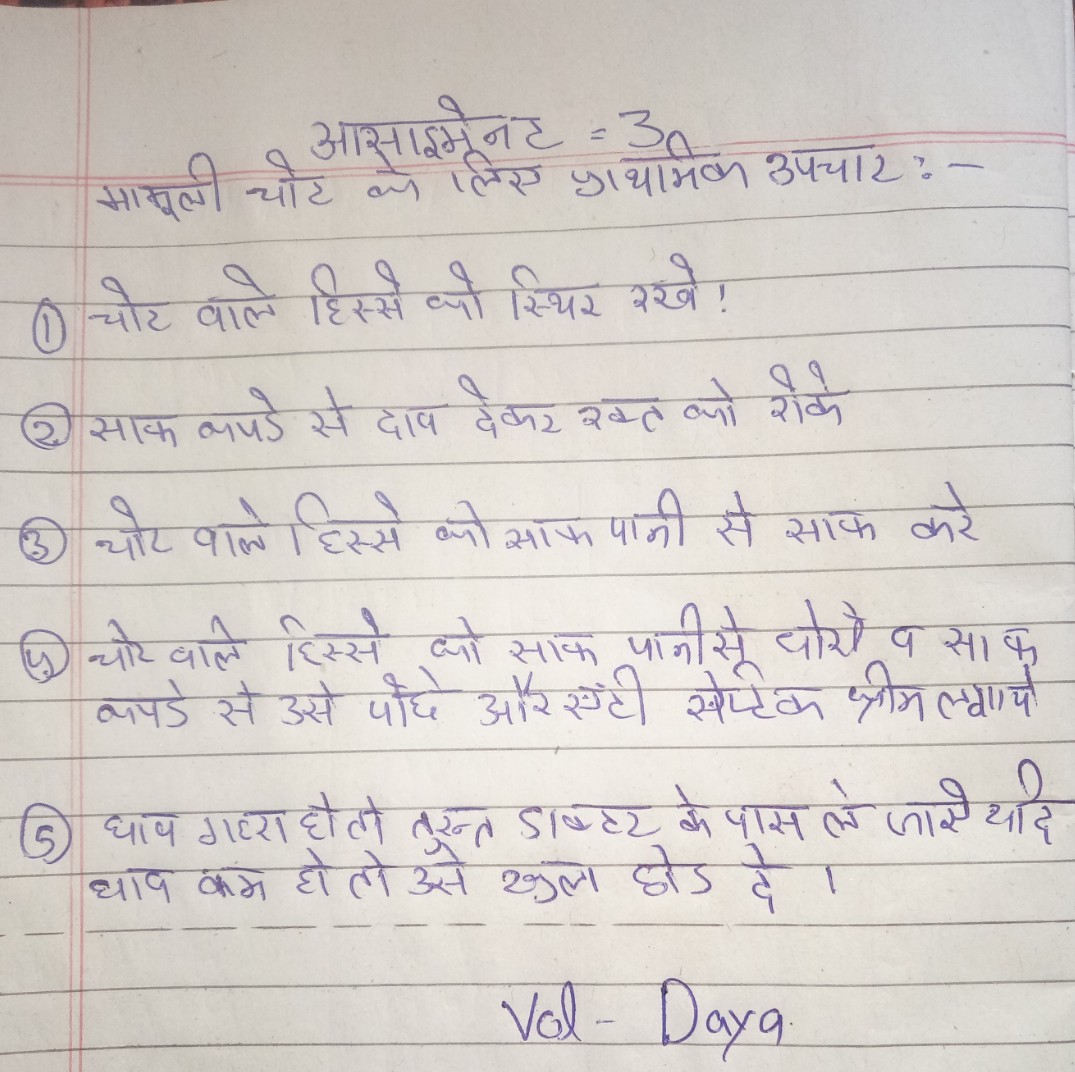 आसाइमेनट = 3
मामूली चोट के लिए प्राथमिक उपचार : -
① चोट वाले हिस्से को स्थिर रखे !
② साफ कपडे से दाव देकर रक्त को रोके
③ चोट वाले हिस्से को साफ पानी से साफ करे
④ चोट वाले हिस्से को साफ पानी से धोये व साफ
कपडे से उसे पोछे और एंटी सेप्टिक क्रीम लगाये
⑤ घाव गहरा हो तो तुरन्त डाक्टर के पास ले जाये यदि
घाव कम हो तो उसे खुला छोड दे ।
Vol - Daya.